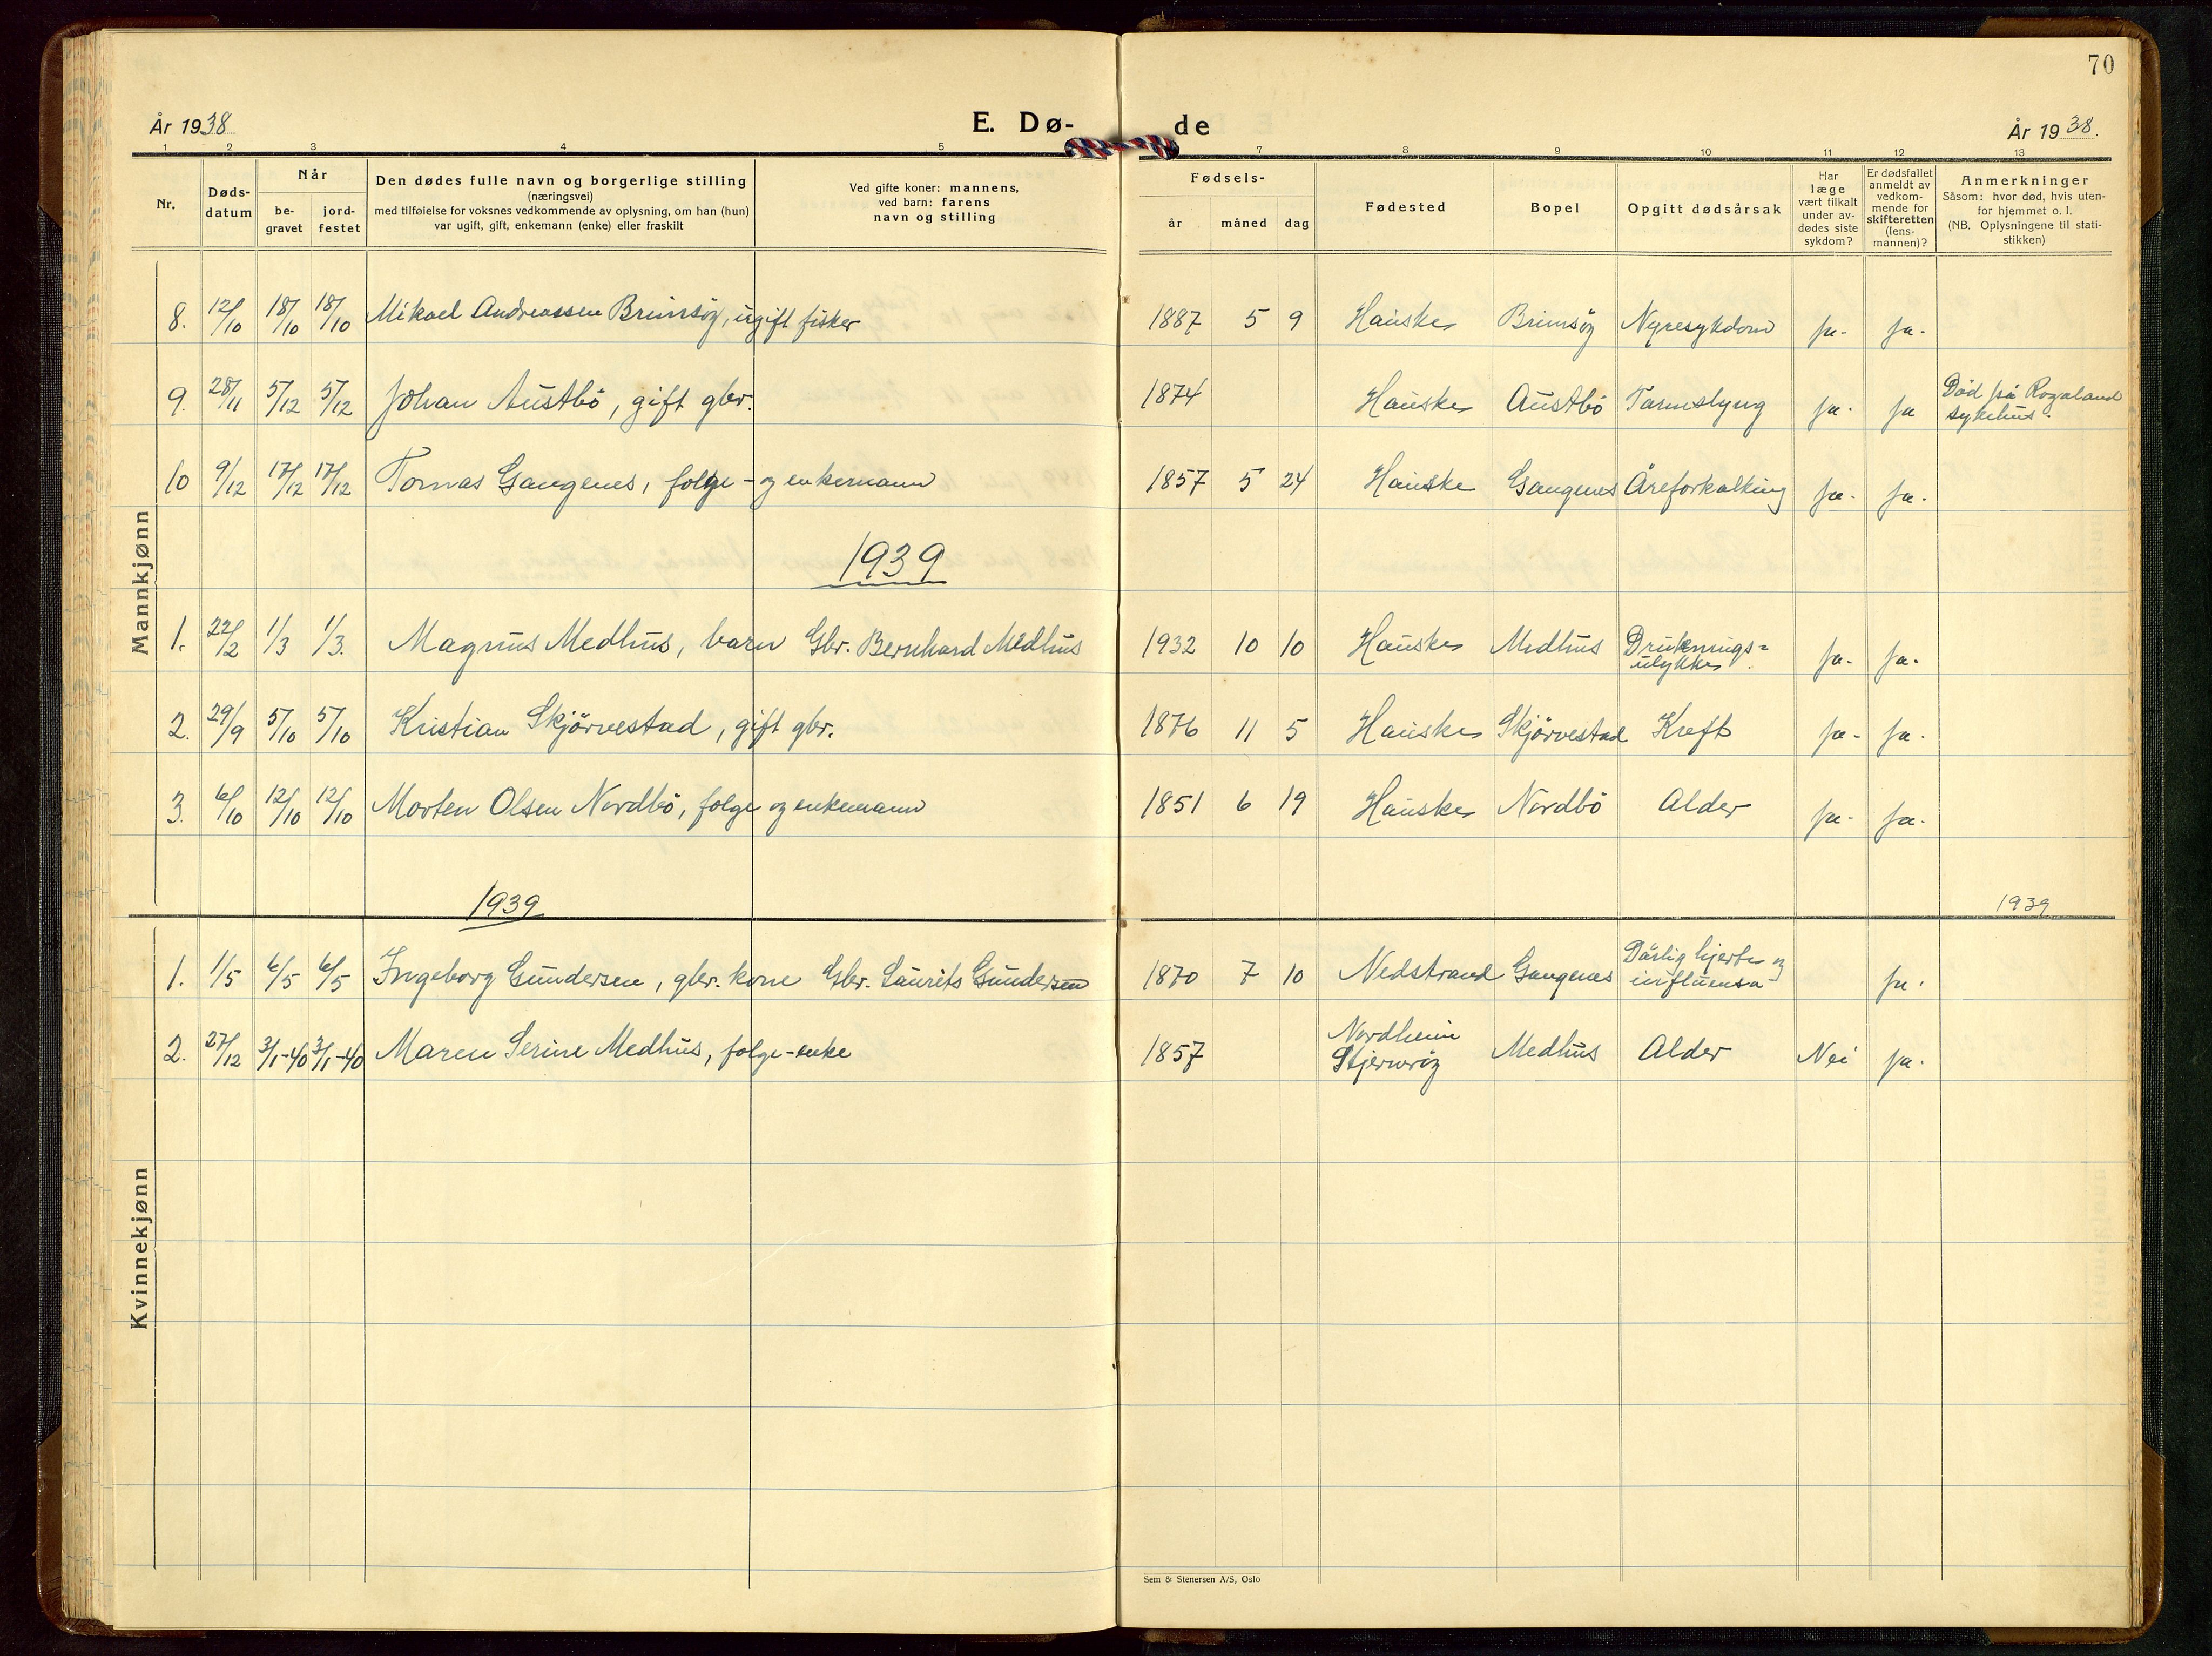 70
År 1938
E. Dø-
de
År 1938.
1 2 3 4 5 7 8 9 10 11 12 13
Nr.
Døds-
datum
Når
be-
gravet
jord-
festet
Den dødes fulle navn og borgerlige stilling
(næringsvei)
med tilføielse for voksnes vedkommende av oplysning, om han (hun)
var ugift, gift, enkemann (enke) eller fraskilt
Ved gifte koner: mannens,
ved barn: farens
navn og stilling
Fødsels-
år måned dag
Fødested
Bopel
Opgitt dødsårsak
Har
læge
vært tilkalt
under av-
dødes siste
sykdom?
Er dødsfallet
anmeldt av
vedkom-
mende for
skifteretten
(lens-
mannen)?
Anmerkninger
Såsom: hvor død, hvis uten-
for hjemmet o. l.
(NB. Oplysningene til stati-
stikken)
Mannkjønn
8. 12/10 18/10 18/10 Mikael Andreassen Brimsöy, ugift fisker 1887 5 9 Hauske Brimsöy Nyresykdom ja. ja.
9. 28/11 5/12 5/12 Johan Austbö, gift gbr. 1874 Hauske Austbö Tarmslyng ja. ja Död på Rogaland
sykehus.
10 9/12 17/12 17/12 Tomas Gangenes, folge- og enkemann 1857 5 24 Hauske Gangenes Åreforkalking ja. ja.
1939
1. 22/2 1/3 1/3. Magnus Medhus, barn Gbr. Bernhard Medhus 1932 10 10 Hauske Medhus Druknings-
ulykke. ja. ja.
2. 29/9 5/10 5/10 Kristian Skjörvestad, gift gbr. 1876 11 5 Hauske Skjörvestad Kreft ja- ja.
3. 6/10 12/10 12/10 Morten Olsen Nordbö, folge og enkemann 1851 6 19 Hauske Nordbö Alder ja- ja.
1939
1939
Kvinnekjønn
1. 1/5 6/5 6/5 Ingeborg Gundersen, gbr. kone Gbr. Laurits Gundersen 1870 7 10 Nedstrand Gangenes Dårlig hjerte og
influensa ja.
2. 27/12 3/1-40 3/1-40 Maren Serine Medhus, folge-enke 1857 Nordheim
Stjernröy Medhus Alder Nei ja.
Sem & Stenersen A/S, Oslo